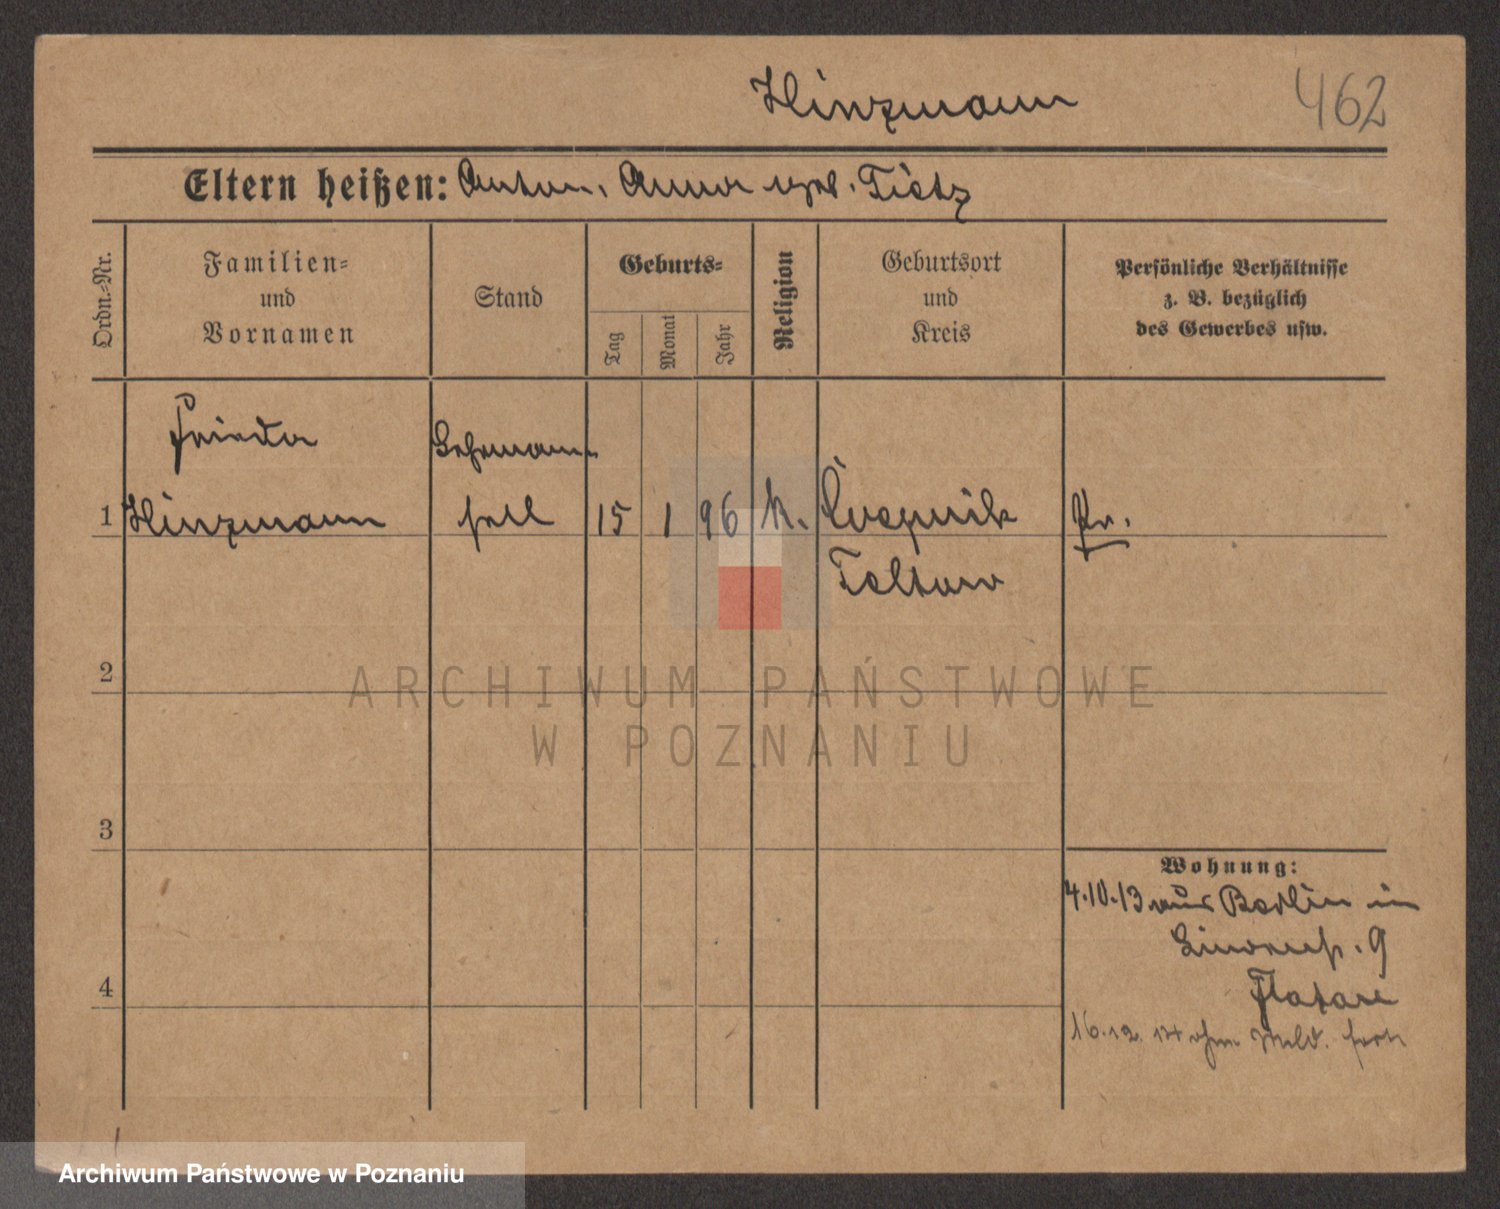 Hinzmann 462
Eltern heißen: Anton, Anna geb. Tietz
Ordn.-Nr.
Familien-
und
Vornamen
Stand
Geburts-
Tag
Monat
Jahr
Religion
Geburtsort
und
Kreis
Persönliche Verhältnisse
z. B. bezüglich
des Gewerbes usw.
Frieda
1 Hinzmann 15 1 96 k. Pr.
Teltow
2
ARCHIWUM PAŃSTWOWE
W POZNANIU
3
Wohnung:
4.10.13 aus Berlin in
9
4
16.12. ohne Meld. fort
Archiwum Państwowe w Poznaniu